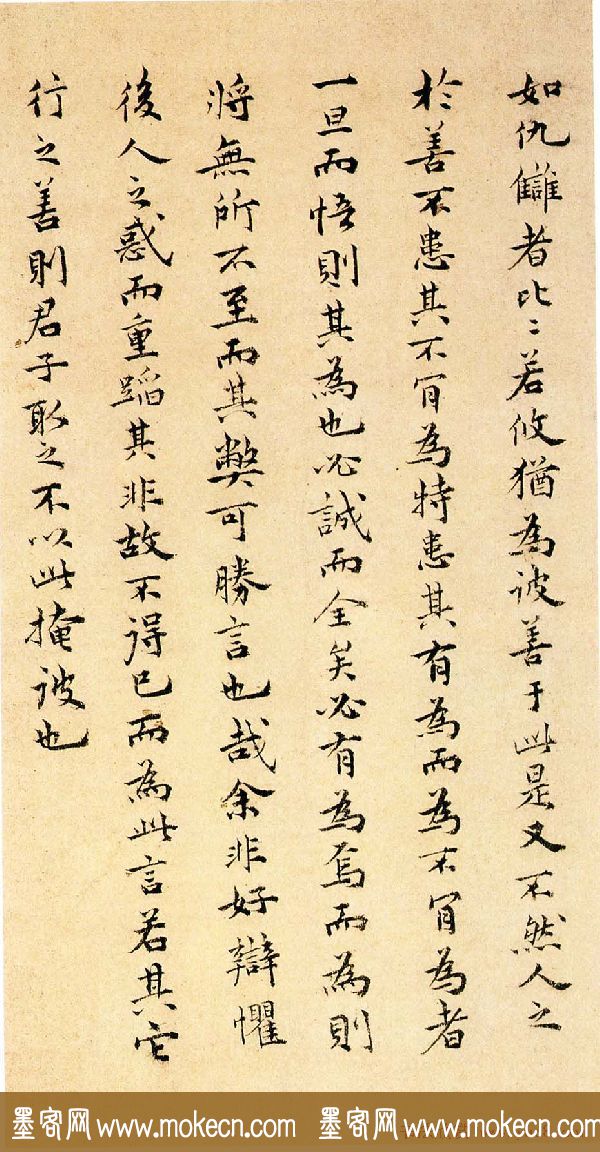 如仇讎者比〻若攸猶為彼善于此是又不然人之
於善不患其不肯為特患其有為而為不肯為者
一旦而悟則其為也必誠而全矣必有為焉而為則
將無所不至而其弊可勝言也哉余非好辯懼
後人之惑而重蹈其非故不得已而為此言若其它
行之善則君子取之不以此掩彼也
墨客网 www.mokecn.com 墨客网 www.mokecn.com